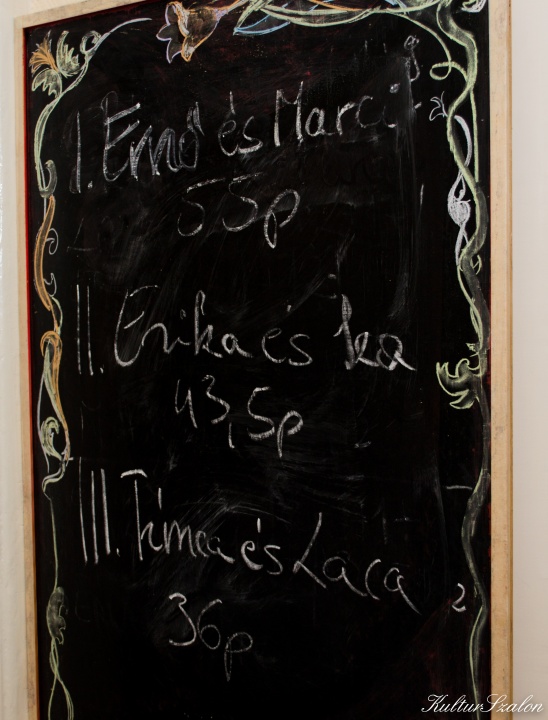 I. Ernő és Marci
55p
II. Erika és
43,5p
III. Tímea és Laca
36p
2
KulturSzalon